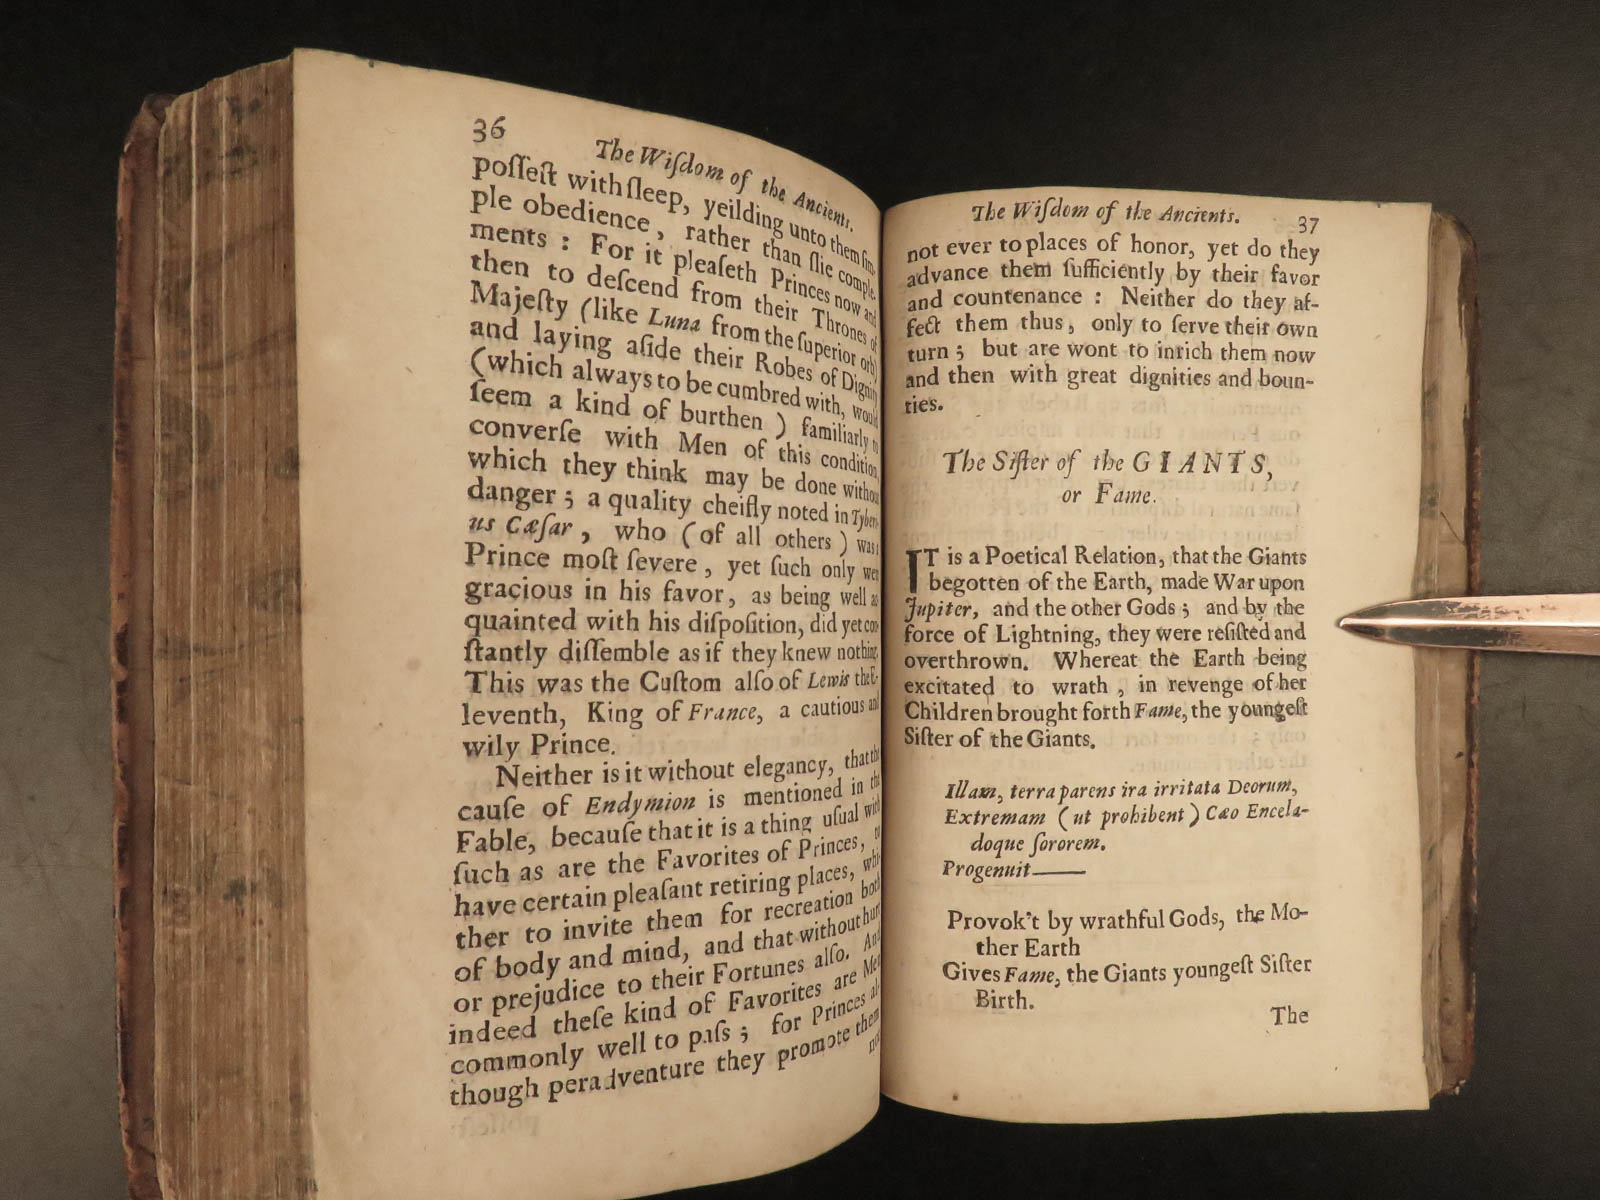 36
The Wiſdom of the Ancients.
poſſeſt with ſleep, yeilding unto them ſim-
ple obedience, rather than ſlie comple-
ments : For it pleaſeth Princes now and
then to deſcend from their Thrones of
Majeſty (like Luna from the ſuperior orb)
and laying aſide their Robes of Dignity
(which always to be cumbred with, would
ſeem a kind of burthen ) familiarly to
converſe with Men of this condition,
which they think may be done without
danger ; a quality cheifly noted in Tyberi-
us Cæſar , who ( of all others ) was a
Prince moſt ſevere , yet ſuch only were
gracious in his favor, as being well ac-
quainted with his diſpoſition, did yet con-
ſtantly diſſemble as if they knew nothing.
This was the Cuſtom alſo of Lewis the E-
leventh, King of France, a cautious and
wily Prince.
Neither is it without elegancy, that the
cauſe of Endymion is mentioned in the
Fable, becauſe that it is a thing uſual with
ſuch as are the Favorites of Princes, to
have certain pleaſant retiring places, whi-
ther to invite them for recreation both
of body and mind, and that without hurt
or prejudice to their Fortunes alſo. And
indeed theſe kind of Favorites are Men
commonly well to paſs ; for Princes al-
though peradventure they promote them
not
The Wiſdom of the Ancients. 37
not ever to places of honor, yet do they
advance them ſufficiently by their favor
and countenance : Neither do they af-
fect them thus, only to ſerve their own
turn ; but are wont to inrich them now
and then with great dignities and boun-
ties.
The Siſter of the GIANTS,
or Fame.
IT is a Poetical Relation, that the Giants
begotten of the Earth, made War upon
Jupiter, and the other Gods ; and by the
force of Lightning, they were reſiſted and
overthrown. Whereat the Earth being
excitated to wrath , in revenge of her
Children brought forth Fame, the youngeſt
Siſter of the Giants.
Illam, terra parens ira irritata Deorum,
Extremam ( ut prohibent ) Cæo Encela-
doque ſororem.
Progenuit———
Provok't by wrathful Gods, the Mo-
ther Earth
Gives Fame, the Giants youngeſt Siſter
Birth.
The